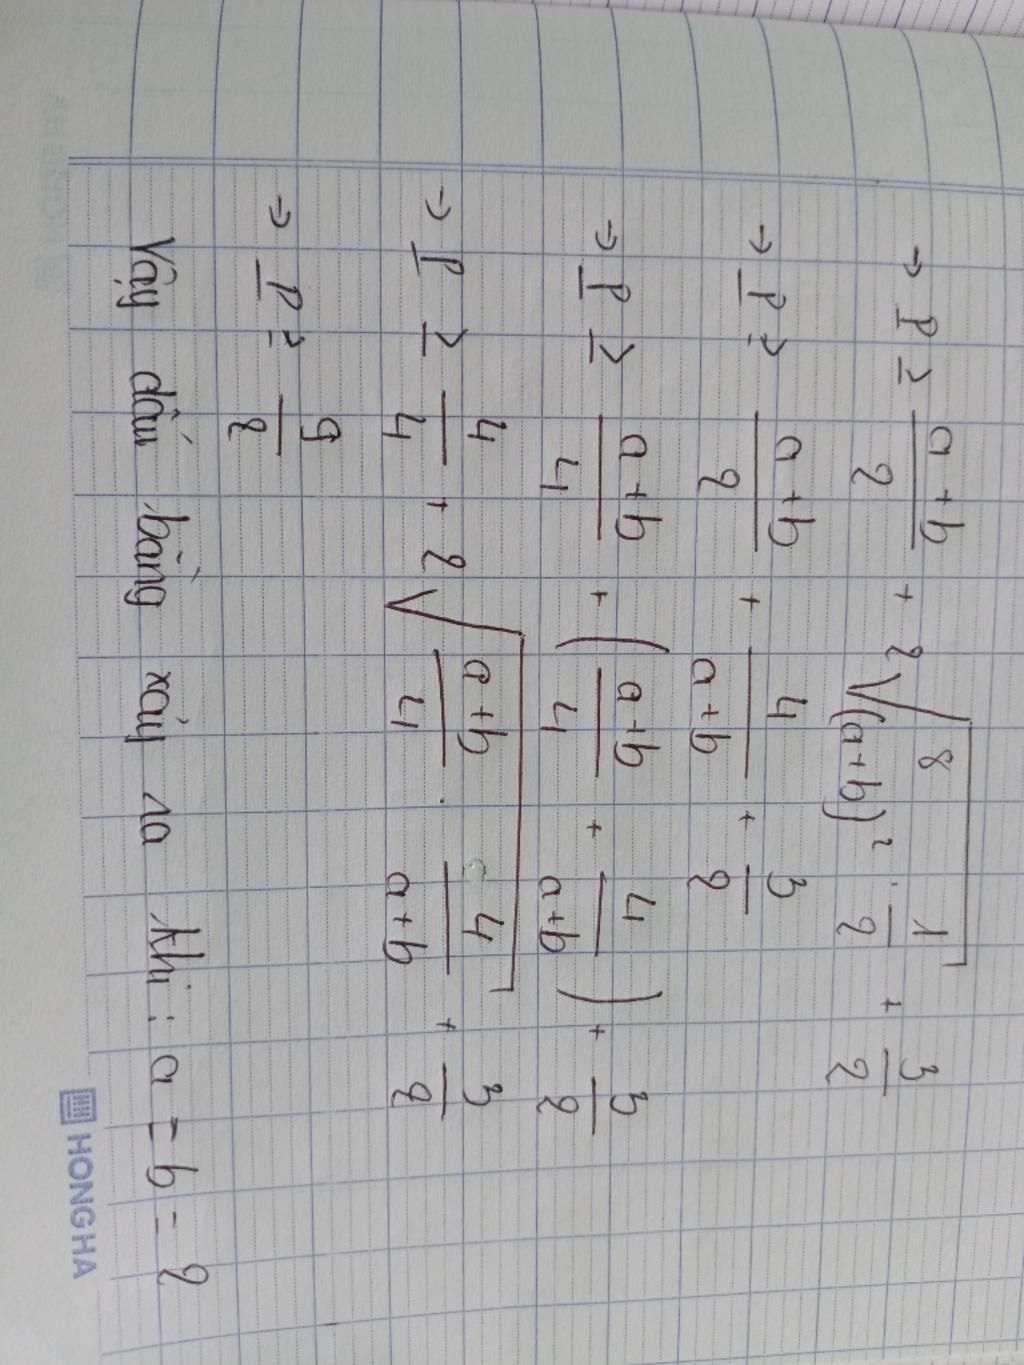 → P ≥ (a+b)/2 + 2√(8/(a+b)² · 1/2) + 3/2
→ P ≥ (a+b)/2 + 4/(a+b) + 3/2
→ P ≥ (a+b)/4 + ((a+b)/4 + 4/(a+b)) + 3/2
→ P ≥ 4/4 + 2√((a+b)/4 · 4/(a+b)) + 3/2
→ P ≥ 9/2
Vậy dấu bằng xảy ra khi: a = b = 2
HONG HA